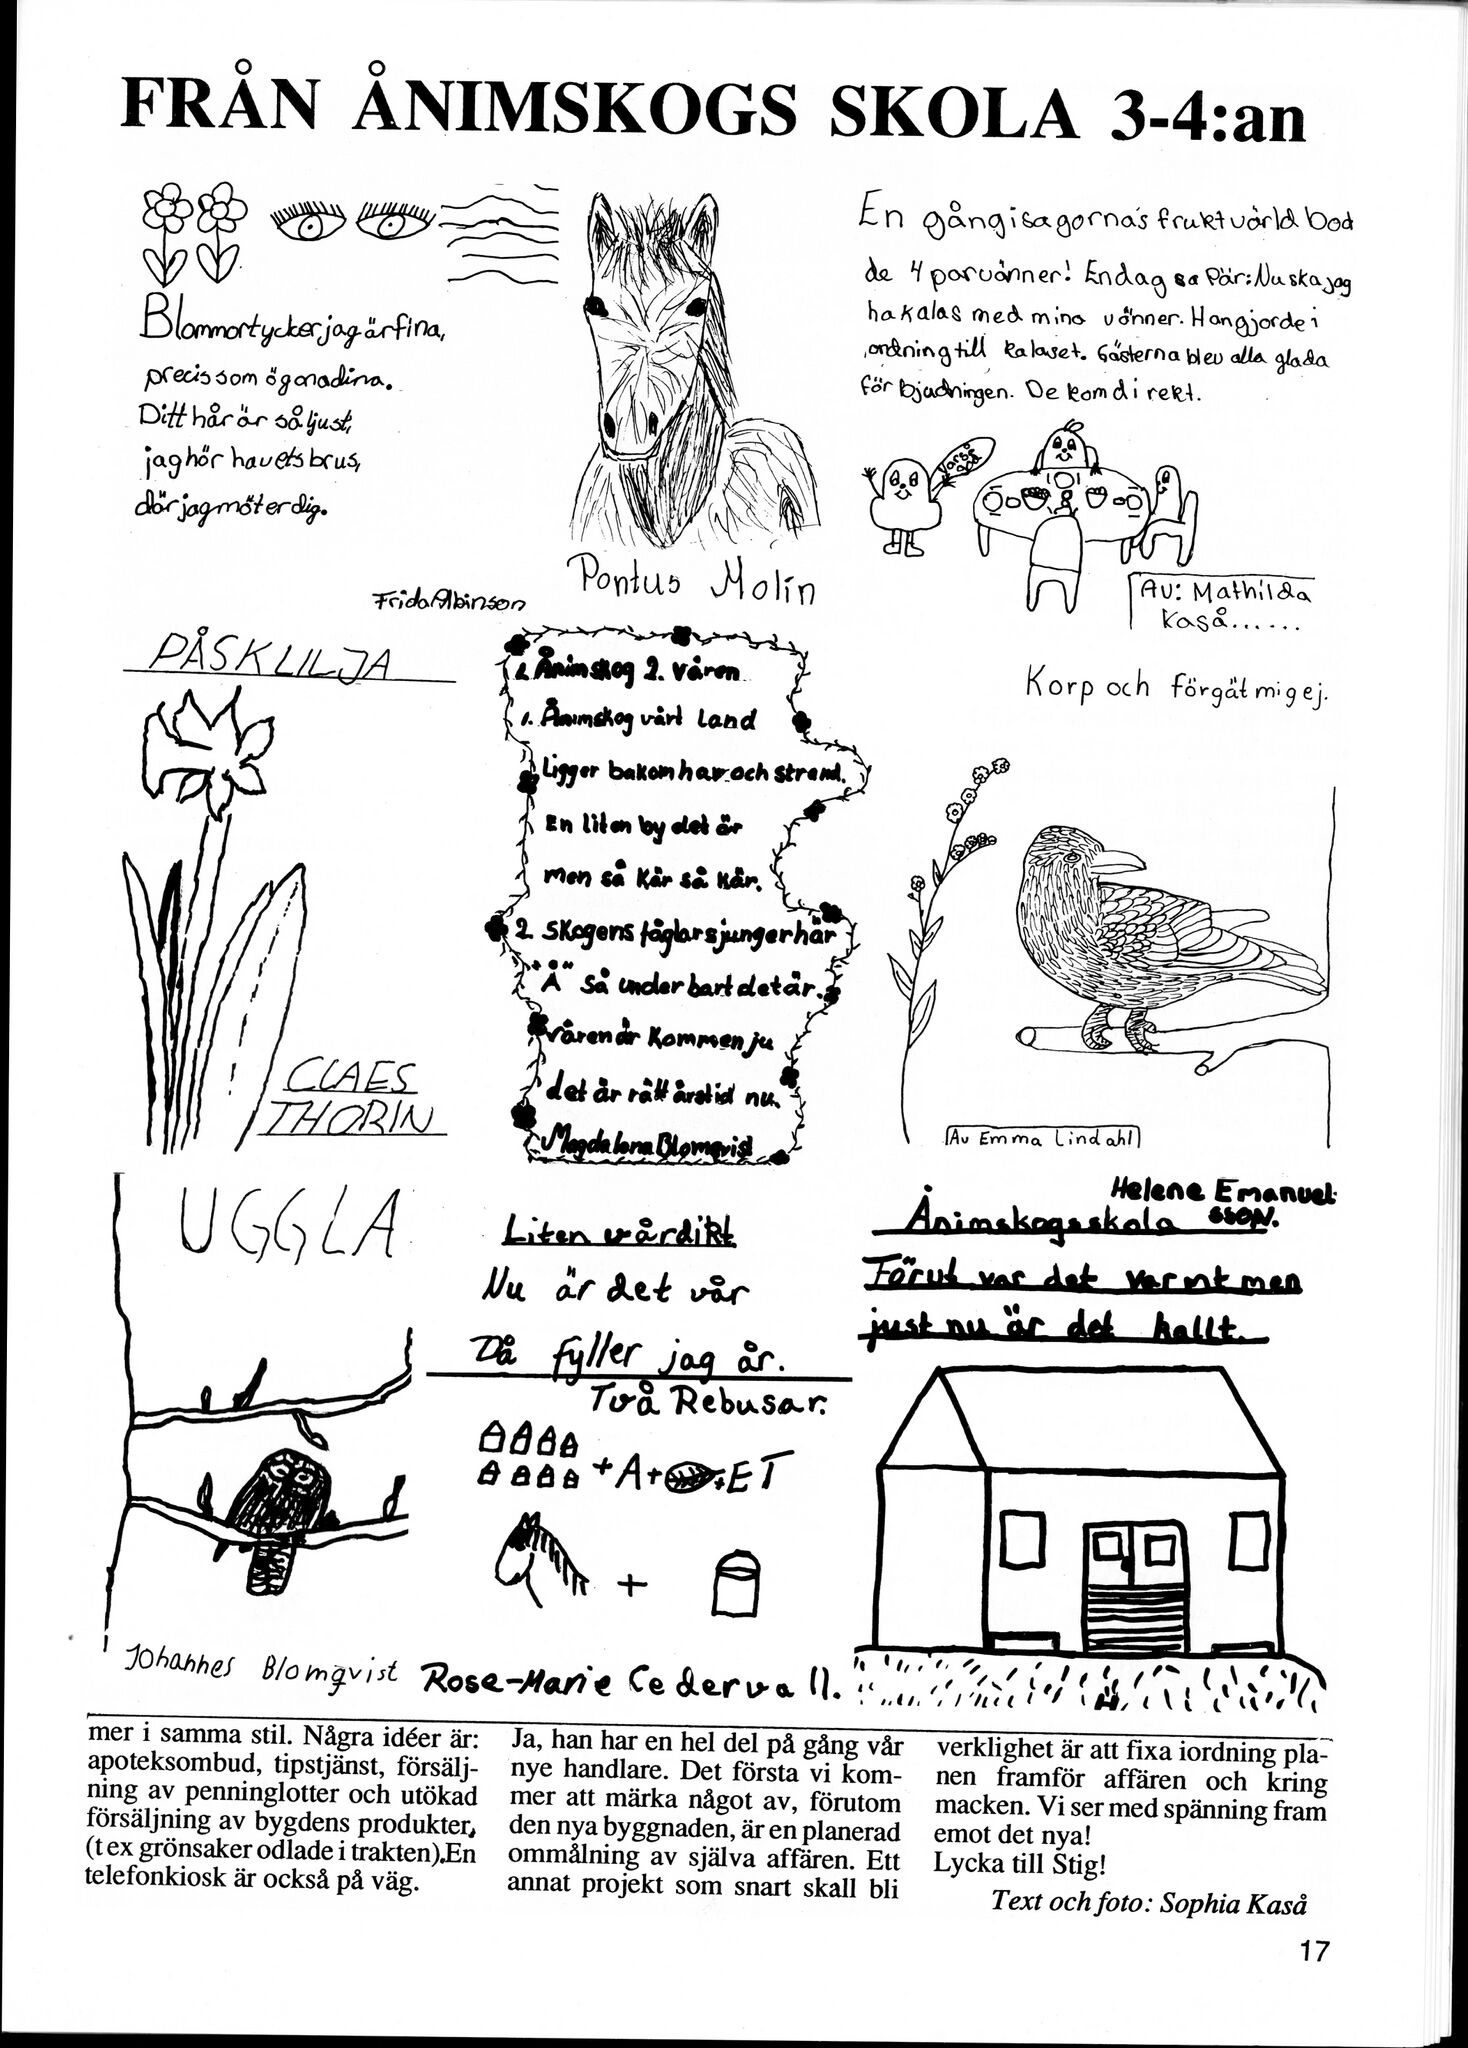 FRÅN ÅNIMSKOGS SKOLA 3-4:an
Blommor tycker jag är fina,
precis som ögona dina.
Ditt hår är så ljust,
jag hör havets brus,
där jag möter dig.
Frida Albinson
Pontus Molin
En gång i sagornas fruktvärld bod
de 4 parvänner! En dag sa Pär: Nu ska jag
ha kalas med mina vänner. Han gjorde i
ordning till kalaset. Gästerna blev alla glada
för bjudningen. De kom direkt.
Varså
god
Av: Mathilda
Kaså......
PÅSKLILJA
CLAES
THORIN
1. Ånimskog 2. Våren
1. Ånimskog vårt land
Ligger bakom hav och strand.
En liten by det är
men så kär så kär.
2. Skogens fåglar sjunger här
"Å" så underbart det är.
våren är kommen ju
det är rätt årstid nu.
Magdalena Blomqvist
Korp och förgät mig ej.
Av Emma Lindahl
UGGLA
Johannes Blomqvist
Liten vårdikt
Nu är det vår
Då fyller jag år.
Två Rebusar.
+A+ +ET
+
Rose-Marie Cedervall.
Helene Emanuel
sson.
Ånimskogsskola
Förut var det varmt men
just nu är det kallt.
mer i samma stil. Några idéer är:
apoteksombud, tipstjänst, försälj-
ning av penninglotter och utökad
försäljning av bygdens produkter,
(t ex grönsaker odlade i trakten).En
telefonkiosk är också på väg.
Ja, han har en hel del på gång vår
nye handlare. Det första vi kom-
mer att märka något av, förutom
den nya byggnaden, är en planerad
ommålning av själva affären. Ett
annat projekt som snart skall bli
verklighet är att fixa iordning pla-
nen framför affären och kring
macken. Vi ser med spänning fram
emot det nya!
Lycka till Stig!
Text och foto: Sophia Kaså
17